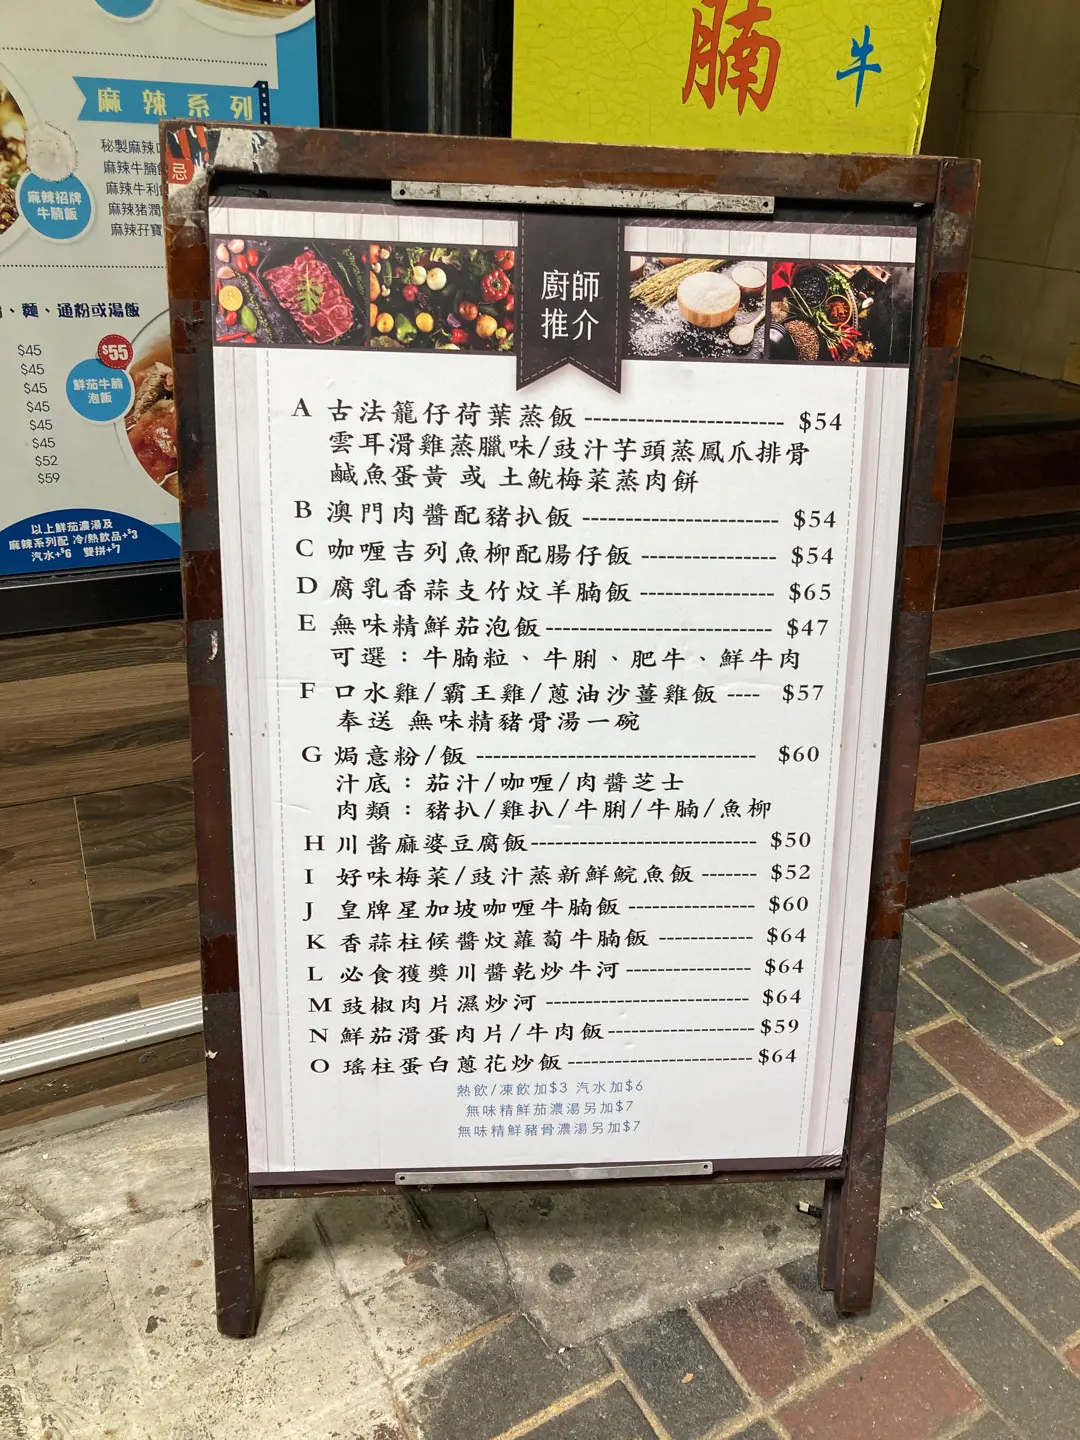 腩 牛
麻辣系列
秘製麻辣
麻辣牛腩
麻辣牛利
麻辣豬潤
麻辣孖寶
麻辣招牌
牛腩飯
忌
、麵、通粉或湯飯
$45
$45
$45
$45
$45
$45
$52
$59
$55
鮮茄牛腩
泡飯
以上鮮茄濃湯及
麻辣系列配 冷/熱飲品+$3
汽水+$6 雙拼+$7
廚師
推介
A 古法籠仔荷葉蒸飯 -------------------- $54
雲耳滑雞蒸臘味/豉汁芋頭蒸鳳爪排骨
鹹魚蛋黃 或 土魷梅菜蒸肉餅
B 澳門肉醬配豬扒飯 -------------------- $54
C 咖喱吉列魚柳配腸仔飯 -------------- $54
D 腐乳香蒜支竹炆羊腩飯 -------------- $65
E 無味精鮮茄泡飯----------------------- $47
可選：牛腩粒、牛脷、肥牛、鮮牛肉
F 口水雞/霸王雞/蔥油沙薑雞飯 ---- $57
奉送 無味精豬骨湯一碗
G 焗意粉/飯 ----------------------------- $60
汁底：茄汁/咖喱/肉醬芝士
肉類：豬扒/雞扒/牛脷/牛腩/魚柳
H 川醬麻婆豆腐飯------------------------ $50
I 好味梅菜/豉汁蒸新鮮鯇魚飯 ------- $52
J 皇牌星加坡咖喱牛腩飯 -------------- $60
K 香蒜柱候醬炆蘿蔔牛腩飯 ----------- $64
L 必食獲獎川醬乾炒牛河-------------- $64
M 豉椒肉片濕炒河 ---------------------- $64
N 鮮茄滑蛋肉片/牛肉飯----------------$59
O 瑤柱蛋白蔥花炒飯--------------------$64
熱飲/凍飲加$3 汽水加$6
無味精鮮茄濃湯另加$7
無味精鮮豬骨濃湯另加$7